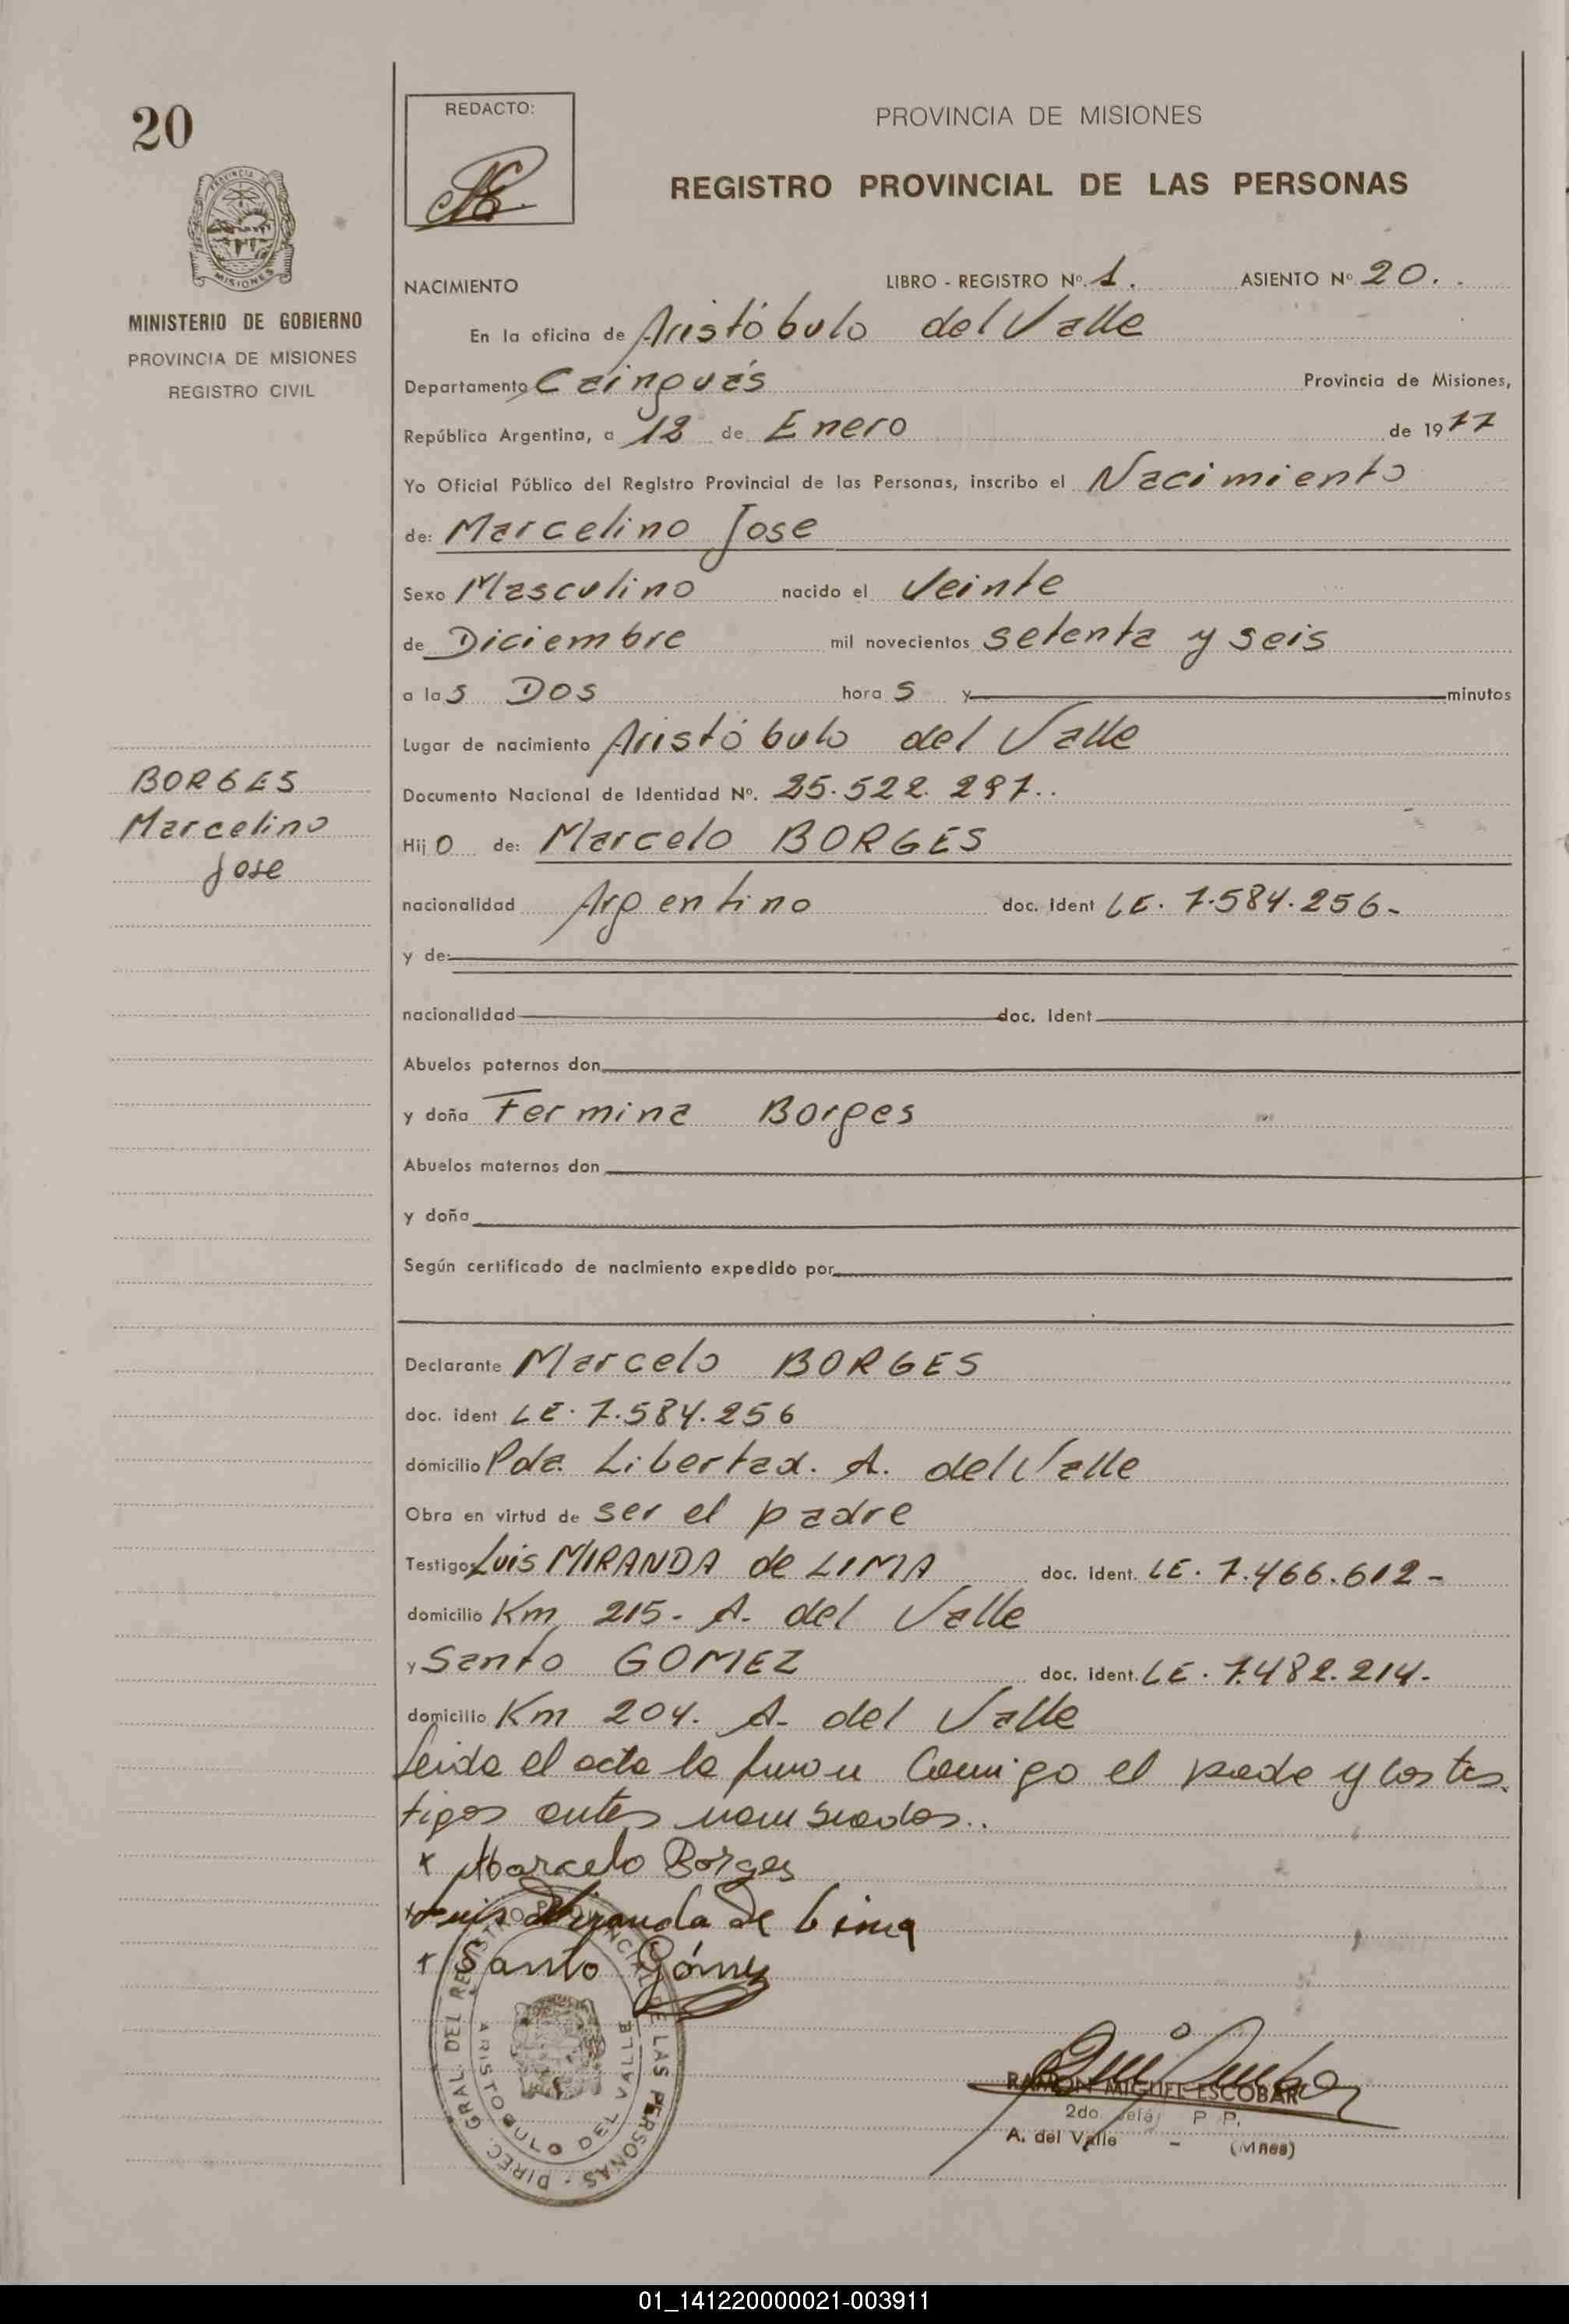 20
REDACTO:
PROVINCIA DE MISIONES
REGISTRO PROVINCIAL DE LAS PERSONAS
MINISTERIO DE GOBIERNO
PROVINCIA DE MISIONES
REGISTRO CIVIL
NACIMIENTO LIBRO - REGISTRO Nº. 1. ASIENTO Nº 20.
En la oficina de Aristóbulo del Valle
Departamento Cainguás Provincia de Misiones,
República Argentina, a 12 de Enero de 1977
Yo Oficial Público del Registro Provincial de las Personas, inscribo el Nacimiento
de: Marcelino Jose
Sexo Masculino nacido el Veinte
de Diciembre mil novecientos setenta y seis
a las Dos horas y minutos
Lugar de nacimiento Aristóbulo del Valle
BORGES
Marcelino
Jose
Documento Nacional de Identidad Nº. 25.522.297..
Hijo de: Marcelo BORGES
nacionalidad Argentino doc. Ident LE. 7.584.256-
y de:
nacionalidad doc. Ident
Abuelos paternos don
y doña Fermina Borges
Abuelos maternos don
y doña
Según certificado de nacimiento expedido por
Declarante Marcelo BORGES
doc. ident LE. 7.584.256
domicilio Pda. Libertad. A. del Valle
Obra en virtud de ser el padre
Testigos Luis MIRANDA de LIMA doc. ident. LE. 7.466.612-
domicilio Km 215- A. del Valle
y Santo GOMEZ doc. ident. LE. 7.482.214.
domicilio Km 204. A- del Valle
Leida el acta la firman Comigo el padre y los tes-
tigos antes nombrados..
x Marcelo Borges
x Luis Miranda de Lima
x Santo Gómez
DIREC. GRAL. DEL REGISTRO PROVINCIAL DE LAS PERSONAS
ARISTOBULO DEL VALLE
RAMON MIGUEL ESCOBAR
2do. Jefe P.P.
A. del Valle - (Mnes)
01_141220000021-003911